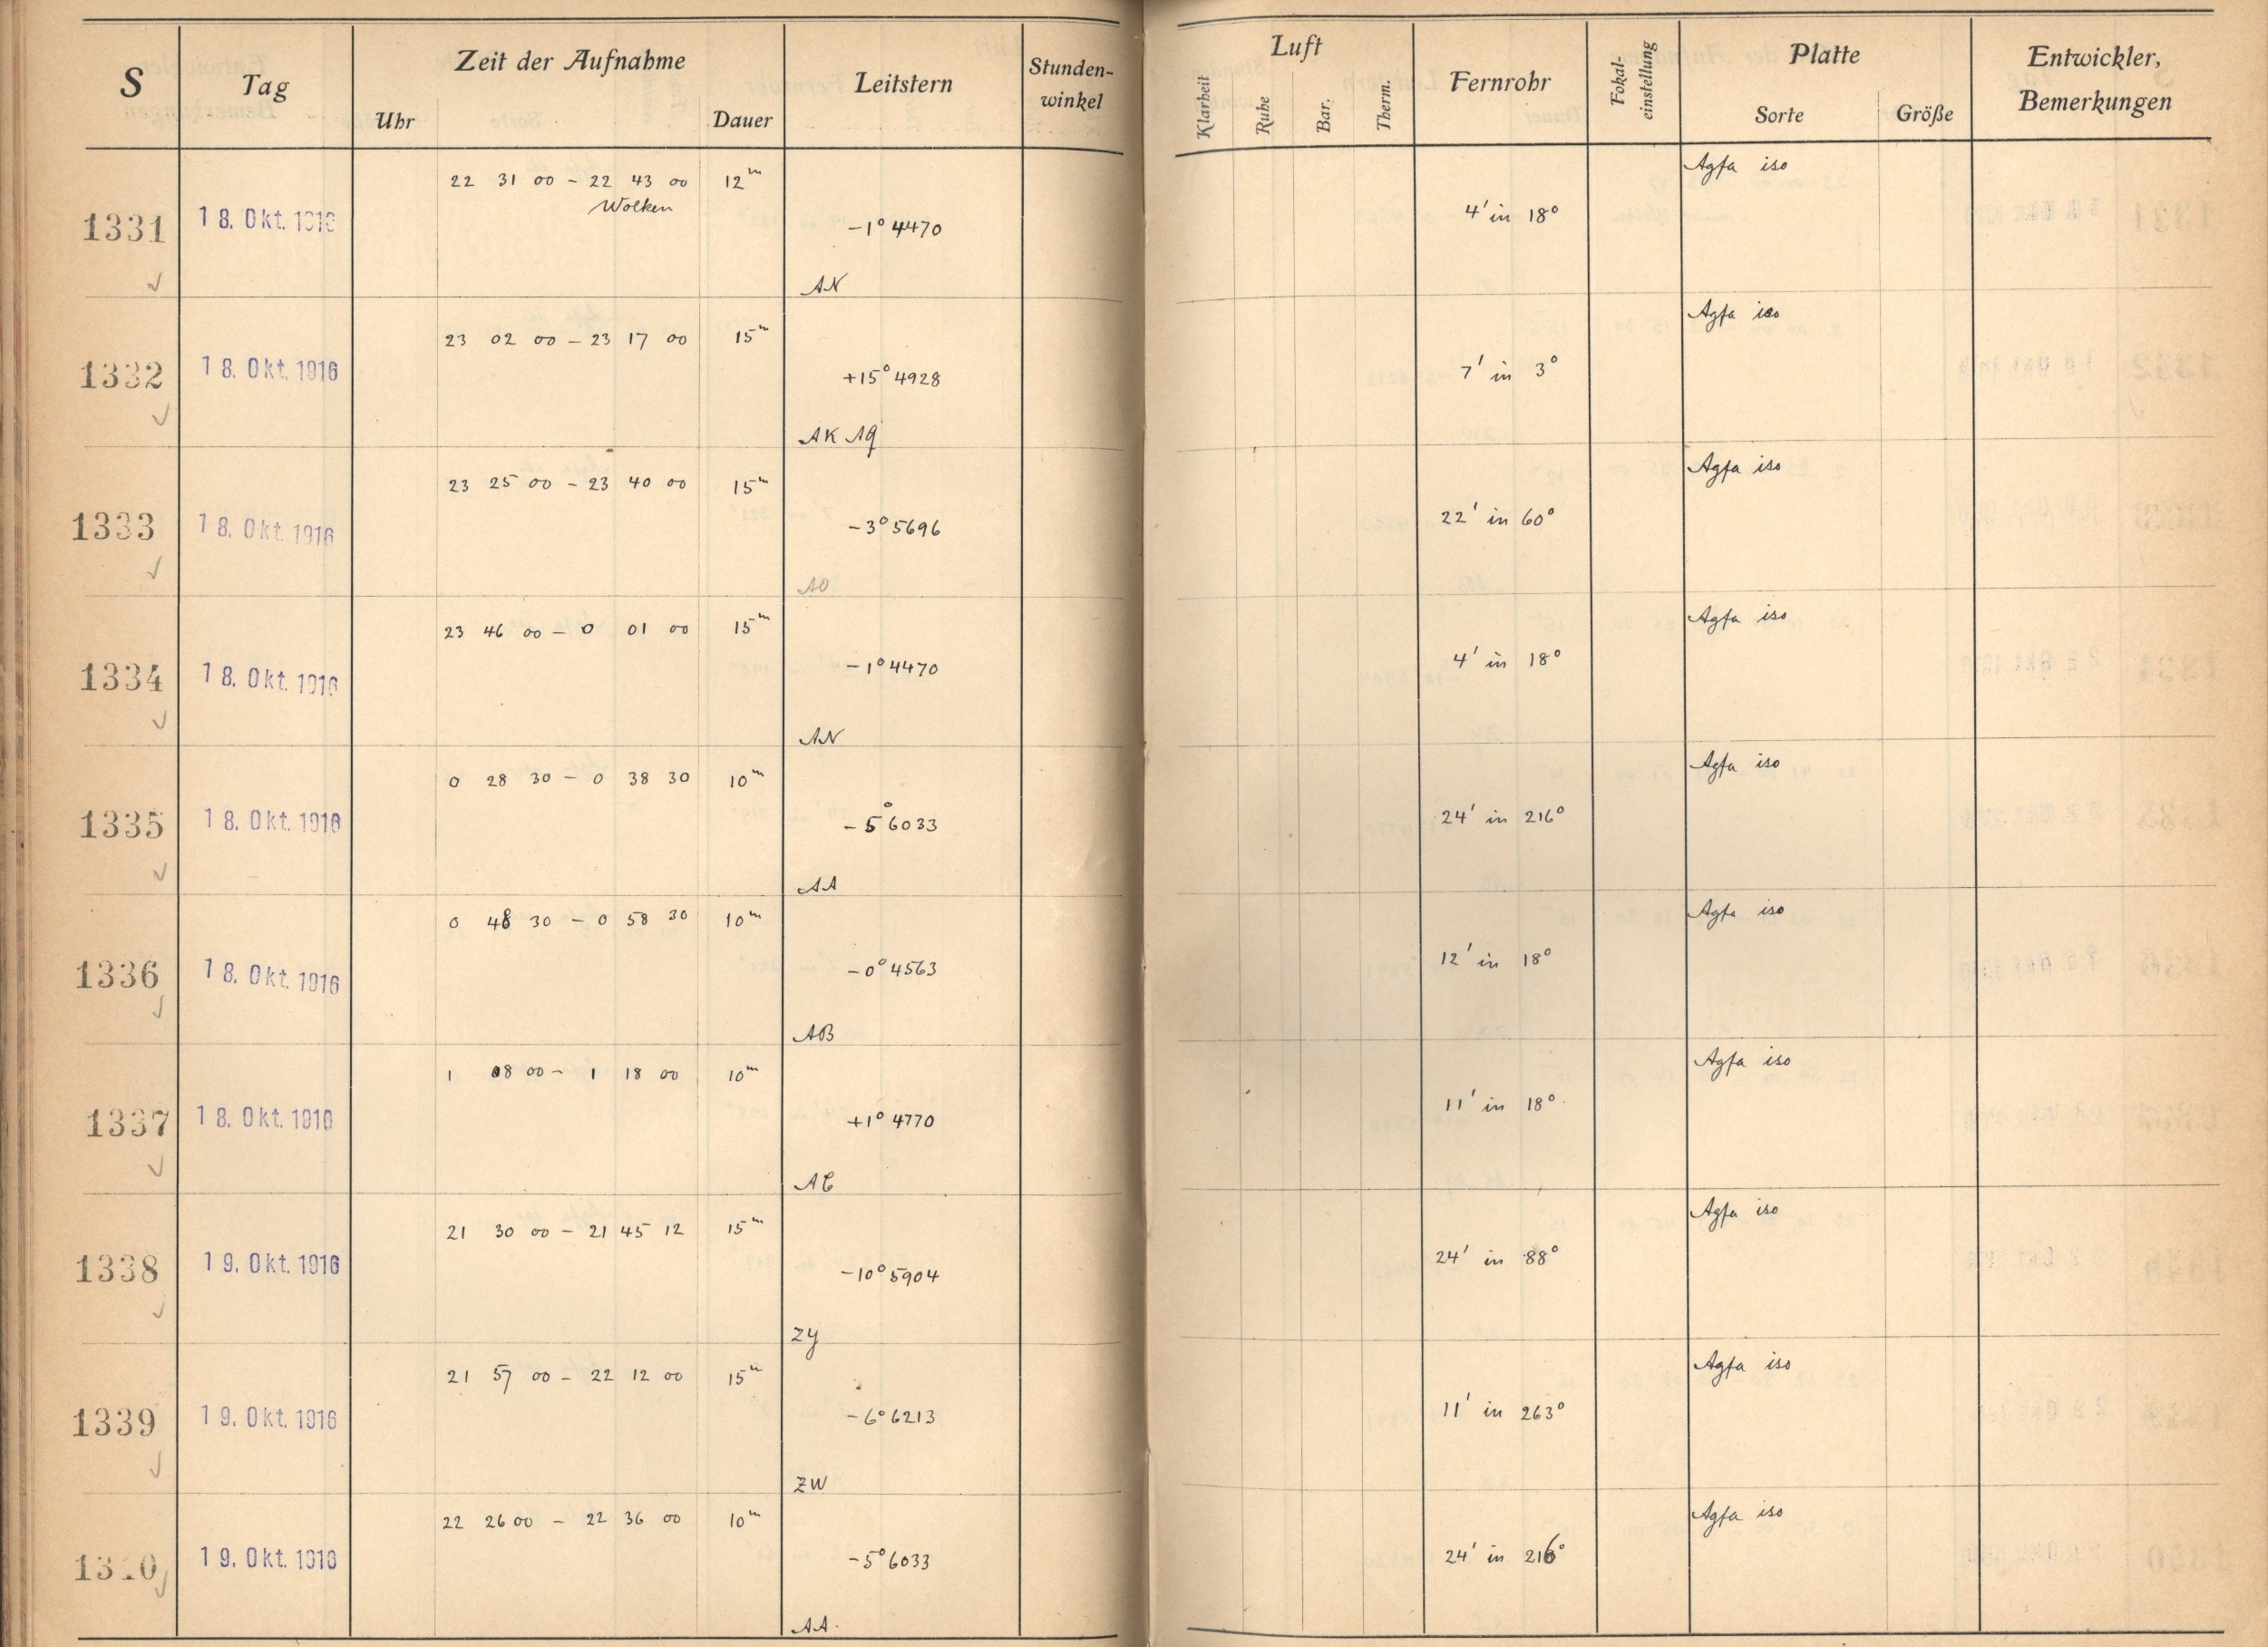 S Tag Zeit der Aufnahme Leitstern Stunden-winkel Luft Fernrohr Fokal-einstellung Platte Entwickler, Bemerkungen
Uhr Dauer Klarheit Ruhe Bar. Therm. Sorte Größe
22 31 00 – 22 43 00 12m Agfa iso
Wolken
1331 18. Okt. 1916 –1° 4470 4' in 18°
AN
23 02 00 – 23 17 00 15m Agfa iso
1332 18. Okt. 1916 +15° 4928 7' in 3°
AK AQ
23 25 00 – 23 40 00 15m Agfa iso
1333 18. Okt. 1916 –3° 5696 22' in 60°
AO
23 46 00 – 0 01 00 15m Agfa iso
1334 18. Okt. 1916 –1° 4470 4' in 18°
AN
0 28 30 – 0 38 30 10m Agfa iso
1335 18. Okt. 1916 –5° 6033 24' in 216°
AA
0 48 30 – 0 58 30 10m Agfa iso
1336 18. Okt. 1916 –0° 4563 12' in 18°
AB
1 08 00 – 1 18 00 10m Agfa iso
1337 18. Okt. 1916 +1° 4770 11' in 18°
AC
21 30 00 – 21 45 12 15m Agfa iso
1338 19. Okt. 1916 –10° 5904 24' in 88°
ZY
21 57 00 – 22 12 00 15m Agfa iso
1339 19. Okt. 1916 –6° 6213 11' in 263°
ZW
22 26 00 – 22 36 00 10m Agfa iso
1340 19. Okt. 1916 –5° 6033 24' in 216°
AA